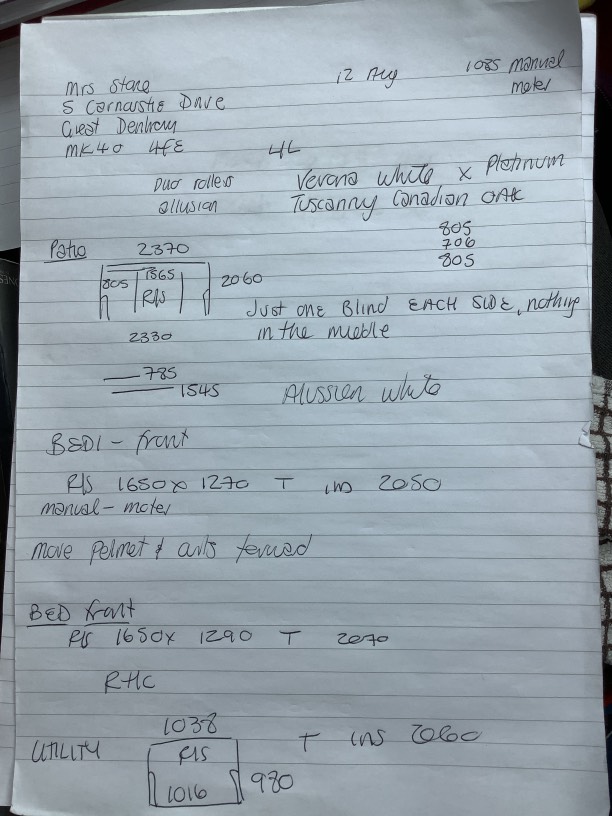 Mrs Stone
12 Aug
1085 manual
moter
5 Carnoustie Drive
Great Denham
MK40 4FE
4L
Duo rollers
allusion
Verona White x Platinum
Tuscanny Canadian OAK
805
706
805
Patio
2370
805
1565
R/S
2060
2330
Just one Blind EACH SIDE, nothing
in the middle
785
1545
Alussien white
BED1 - front
R/S 1650 x 1270 T ins 2050
manual - moter
move pelmet &
BED front
R/S 1650 x 1290 T 2070
RHC
UTILITY
1038
R/S
1016
980
T ins 2060